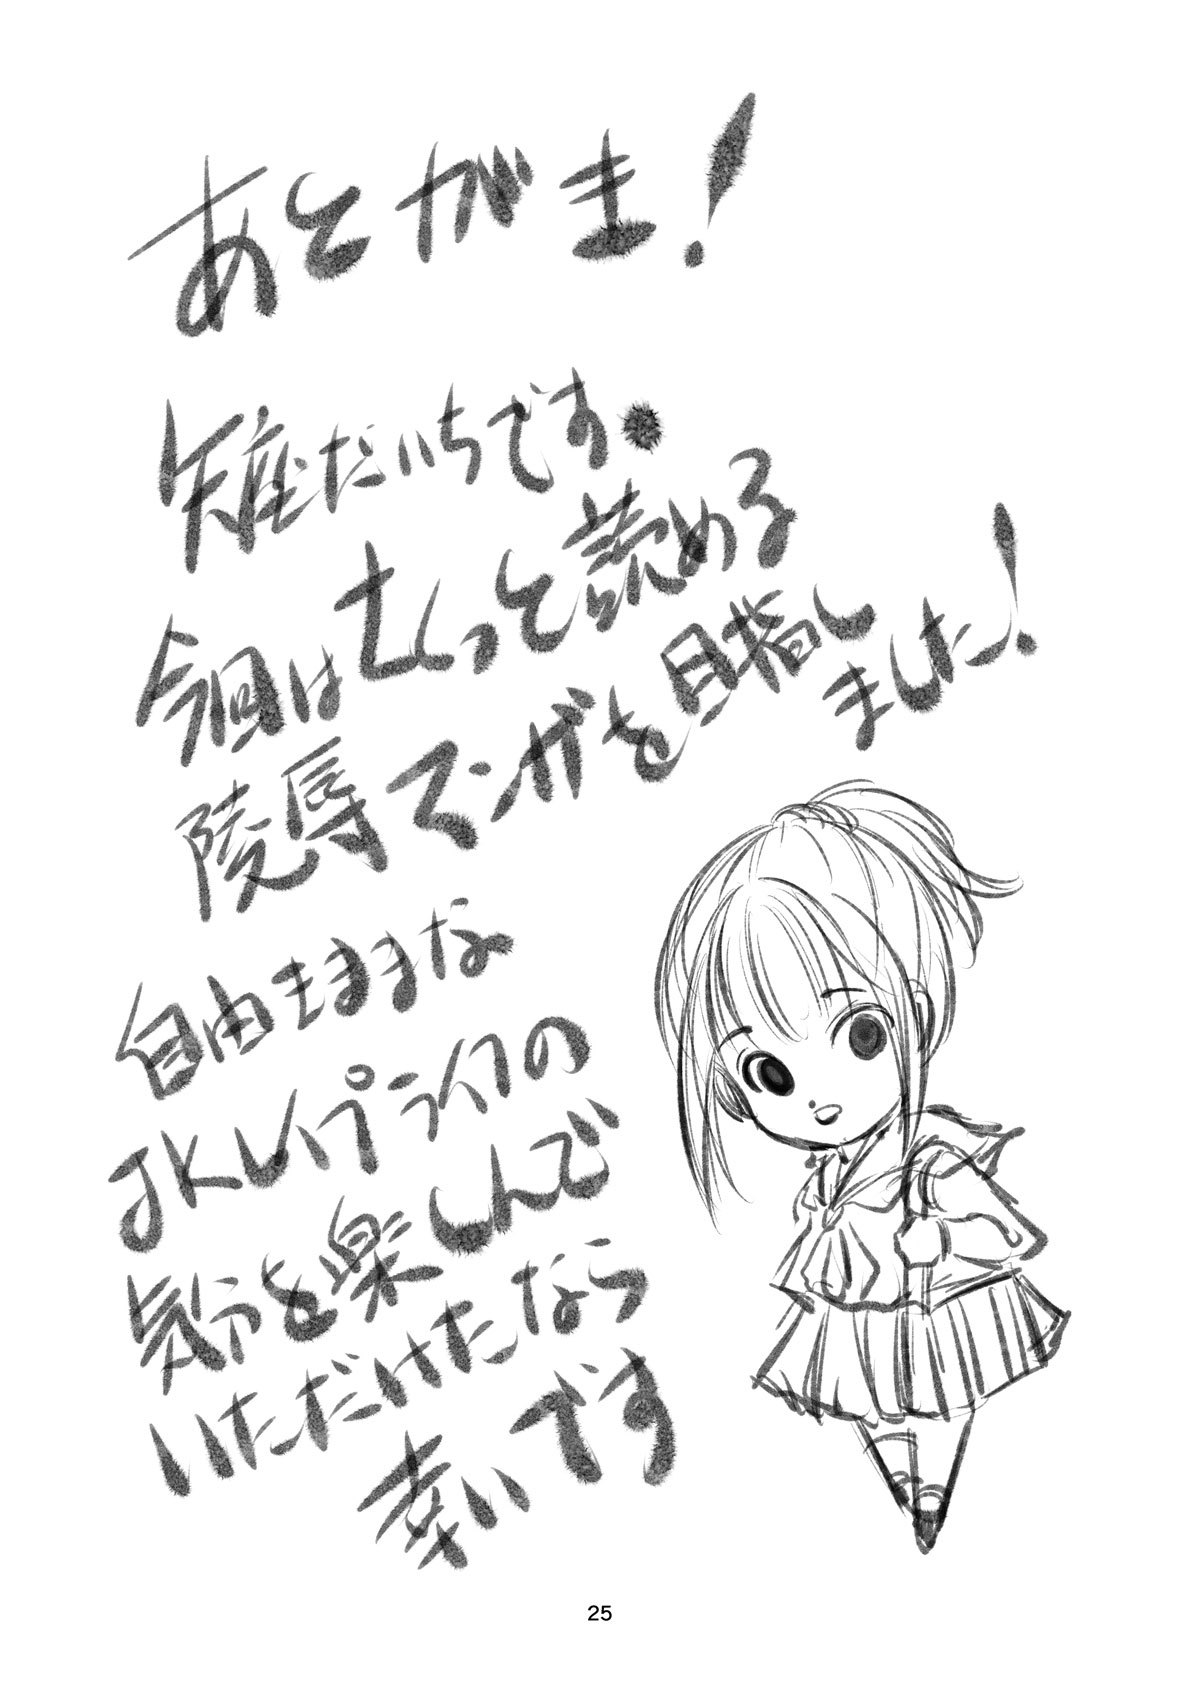 あとがき!
だいちです。
今回はさくっと読める
陵辱マンガを目指し
ました!
自由きままな
JKレイプライフの
気分を楽しんで
いただけたなら
幸いです
25